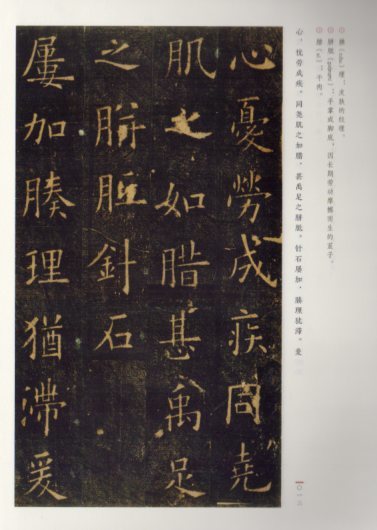 腠（còu）理：皮肤的纹理。
胼胝（piánzhī）：手掌或脚底，因长期劳动摩擦而生的茧子。
腊（xī）：干肉。
心，忧劳成疾，同尧肌之如腊，甚禹足之胼胝，针石屡加，腠理犹滞。爰
心憂勞成疾同堯
肌之如腊甚禹足
之胼胝針石
屢加腠理猶滯爰